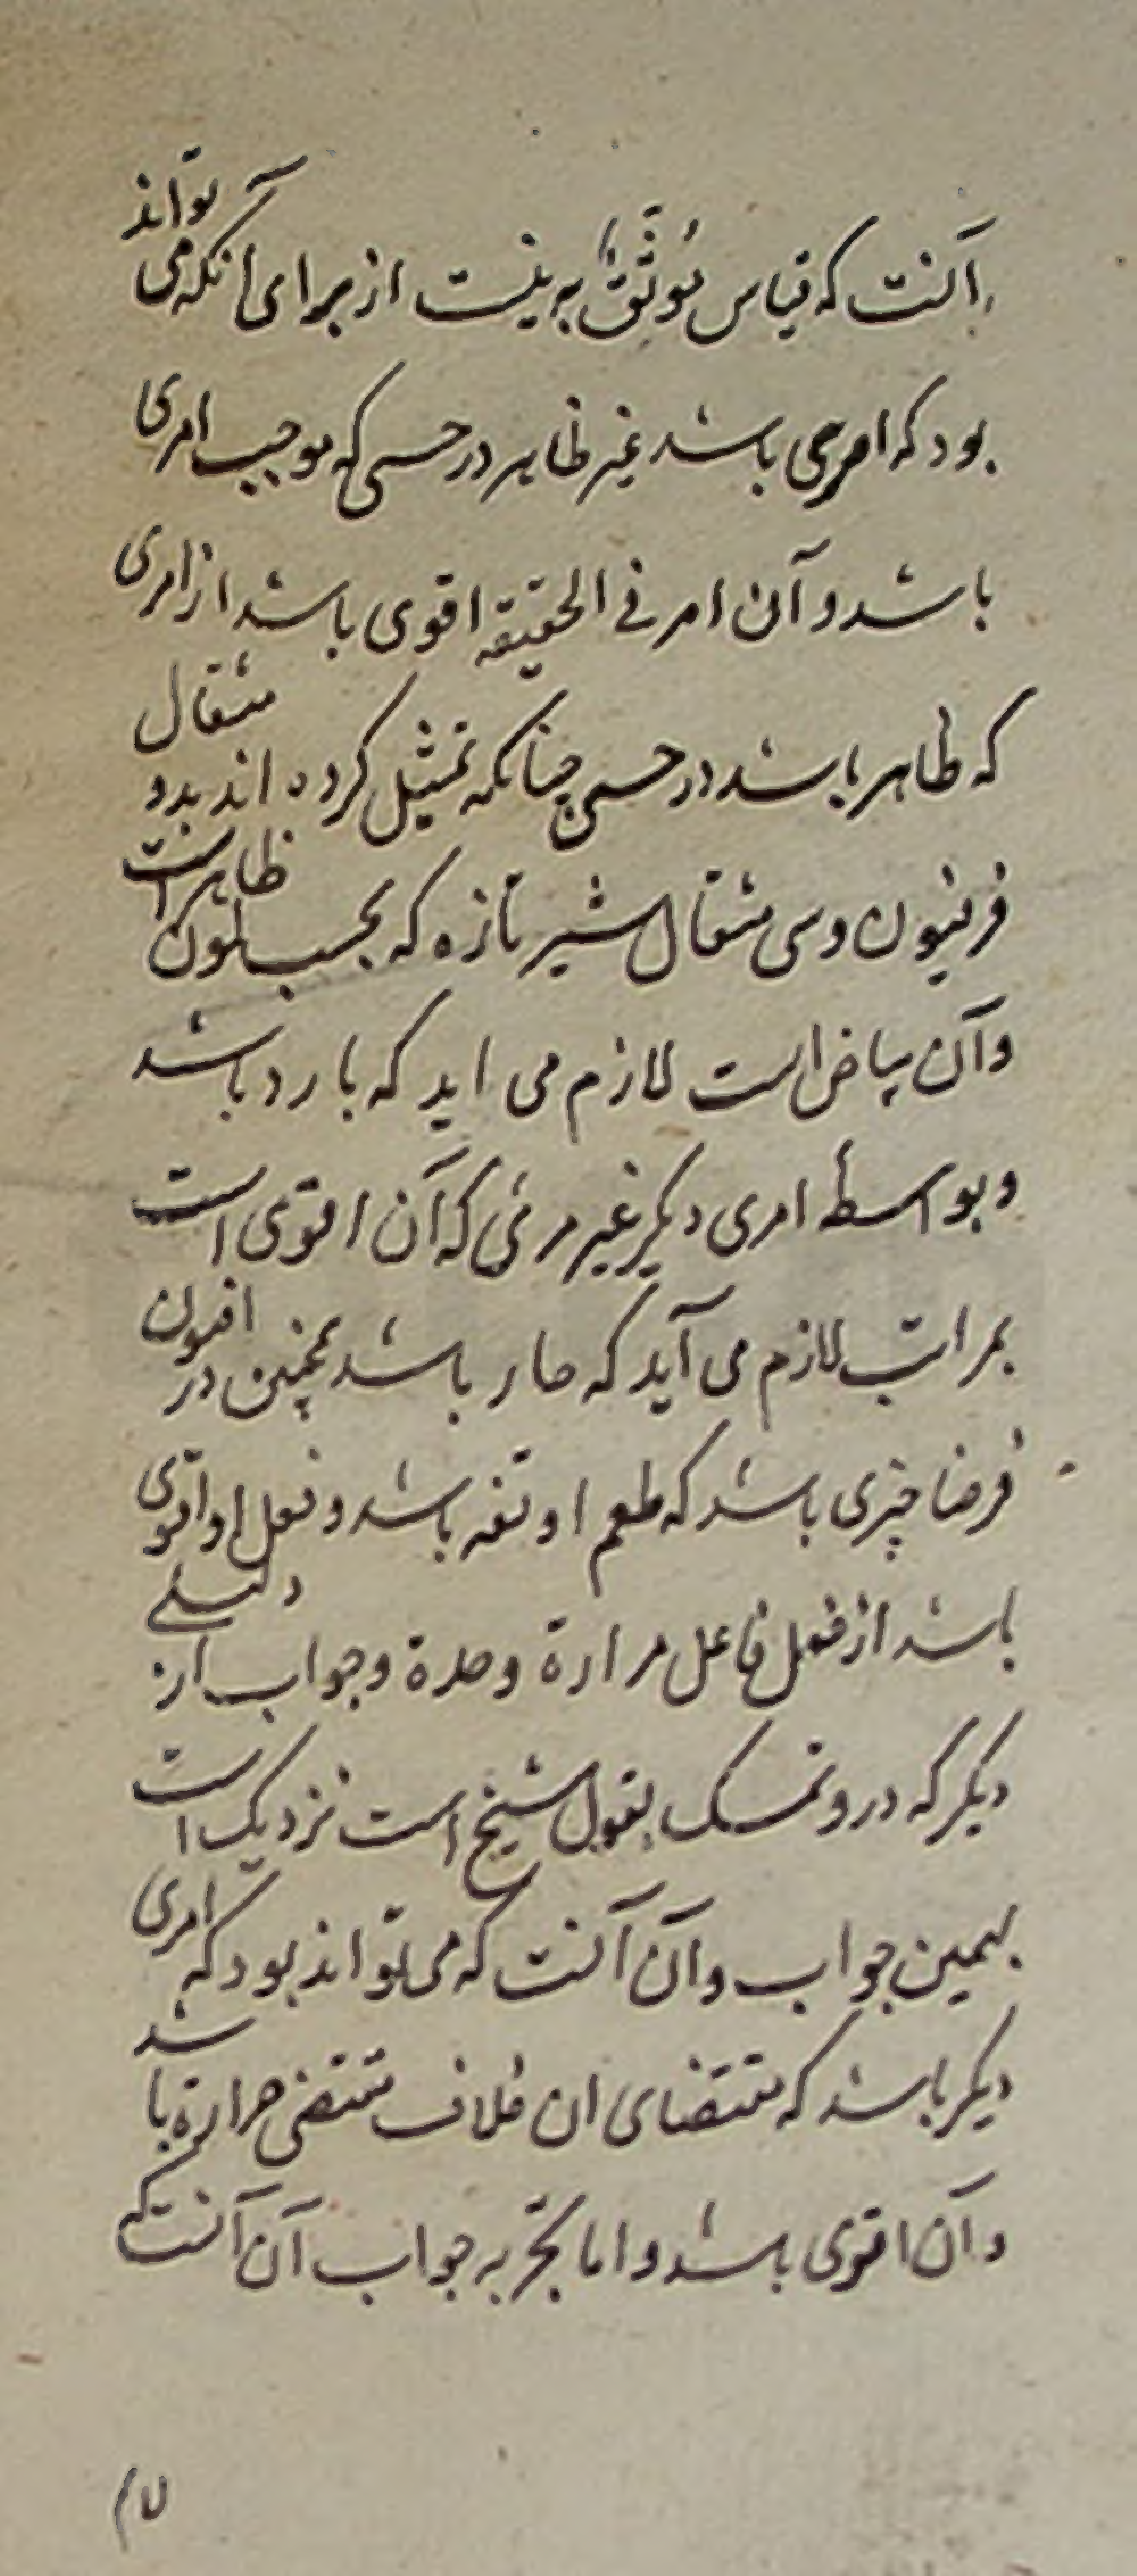 آنست که قیاس مُوثَّقٌ به نیست از برای آنکه می تواند
بود که امری باشد غیر ظاهر در حسی که موجب امری
باشد و آن امر فی الحقیقه اقوی باشد از امری
که ظاهر باشد در حسی چنانکه تمثیل کرده اند بدو مثقال
فرفیون و سی مثقال شیر تازه که بحسب لون ظاهر است
و آن بیاض است لازم می اید که بارد باشد
و بواسطهٔ امری دیگر غیر مرئی که آن اقوی است
بمراتب لازم می آید که حار باشد همچنین در افیون
فرضا چیزی باشد که طعم او تفه باشد و فعل او اقوی
باشد از فعل فاعل مرارة وحدة و جواب از دلیلی
دیگر که درو تمسک بقول شیخ است نزدیک است
بهمین جواب و آن آنست که می تواند بود که امری
دیگر باشد که مقتضای ان خلاف مقتضی حرارة باشد
و آن اقوی باشد و اما تجربه جواب آن آنست که